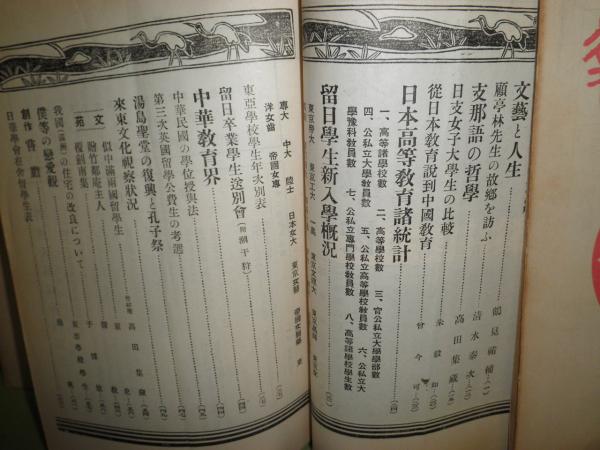 文藝と人生 鶴見祐輔
顧亭林先生の故鄉を訪ふ 清水泰次
支那語の哲學 高田集藏
日支女子大學生の比較
從日本教育說到中國教育 曾今可
日本高等教育諸統計
一、高等諸學校數 二、高等學校數 三、官公私立大學學部數
四、公私立大學教員數 五、公私立高等學校教員數 六、公私立大
學豫科教員數 七、公私立專門學校教員數 八、高等諸學校學生數
留日學生新入學概況
東京帝大 東京工大 一高 東京文理大 東京高師
專大 中大 陸士 日本女大 東京女醫
洋女齒 帝國女專 帝國女醫藥
東亞學校學生年次別表
留日卒業學生送別會(附潮干狩)
中華教育界
中華民國の學位授與法
第三次英國留學公費生の考選
湯島聖堂の復興と孔子祭
來東文化視察狀況
文 似中滿兩國留學生 高田集藏
翰竹鄰庵主人
苑 複劍南集
我國(溫州)の住宅の改良について 東亞學校學生
僕等の戀愛觀
創作 啓蟄
日華學會在舍留學生表